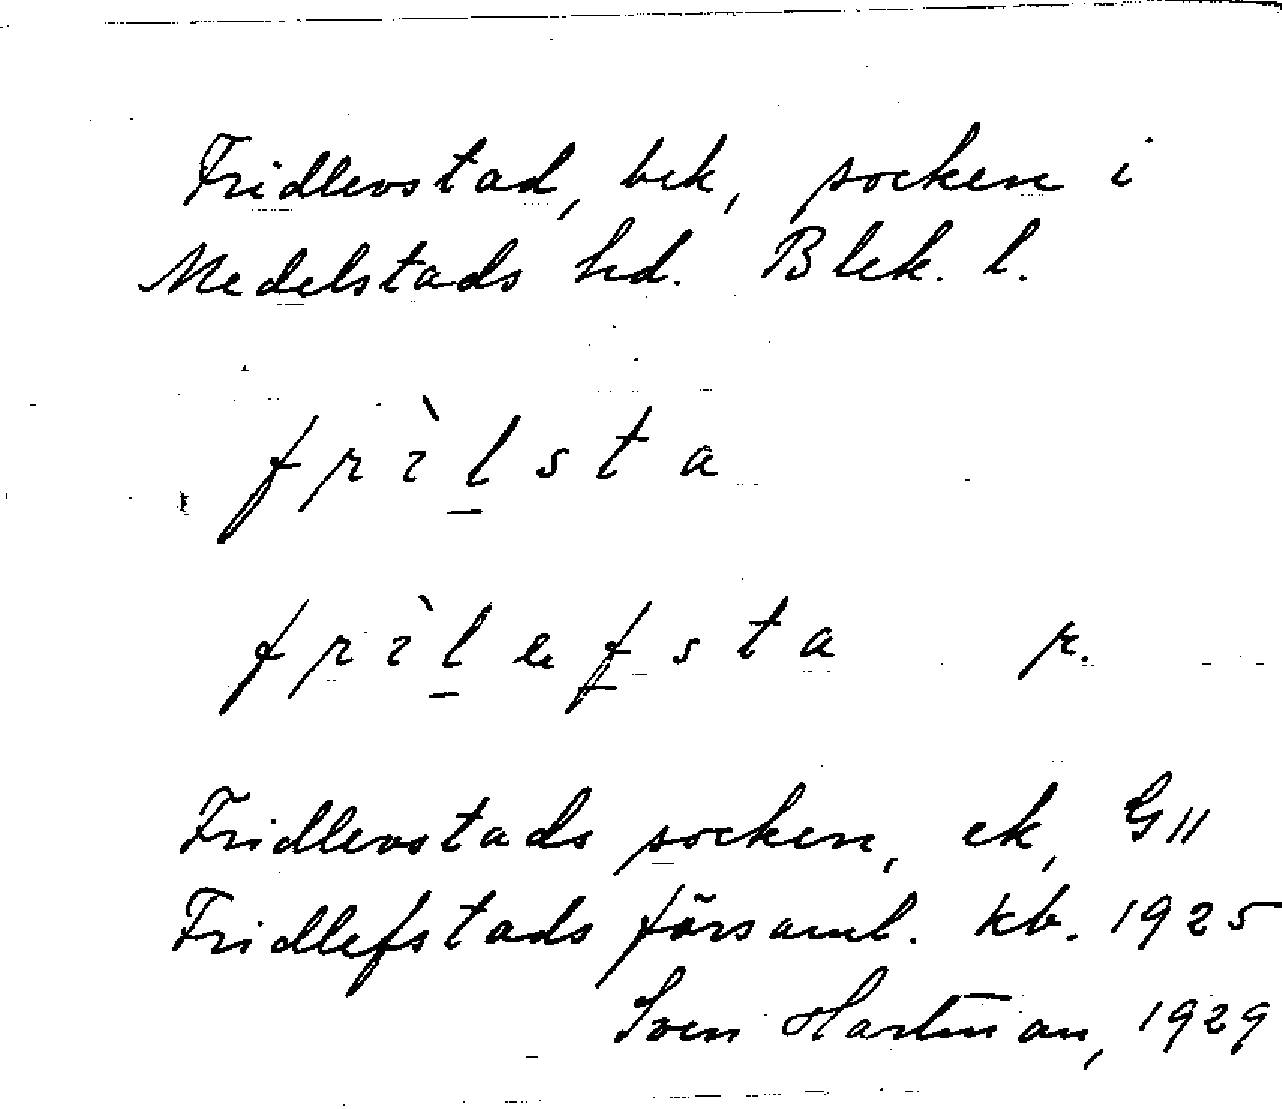 Fridlevstad, bek, socken i
Medelstads hd. Blek. l.
frìlsta
frìlefsta r.
Fridlevstads socken, ek, G11
Fridlefstads församl. kb. 1925
Sven Hartman, 1929